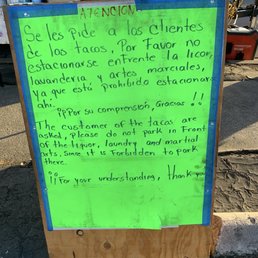 ATENCION
Se les pide a los clientes
de los tacos, Por Favor no
estacionarse enfrente la licor,
lavanderia y artes marciales,
ya que está prohibido estacionarse
ahi. ¡¡Por su comprensión, Gracias!!
The customer of the tacos are
asked, Please do not park in Front
of the liquor, laundry and martial
arts, Since it is Forbidden to park
there.
¡¡For your understanding, thank you